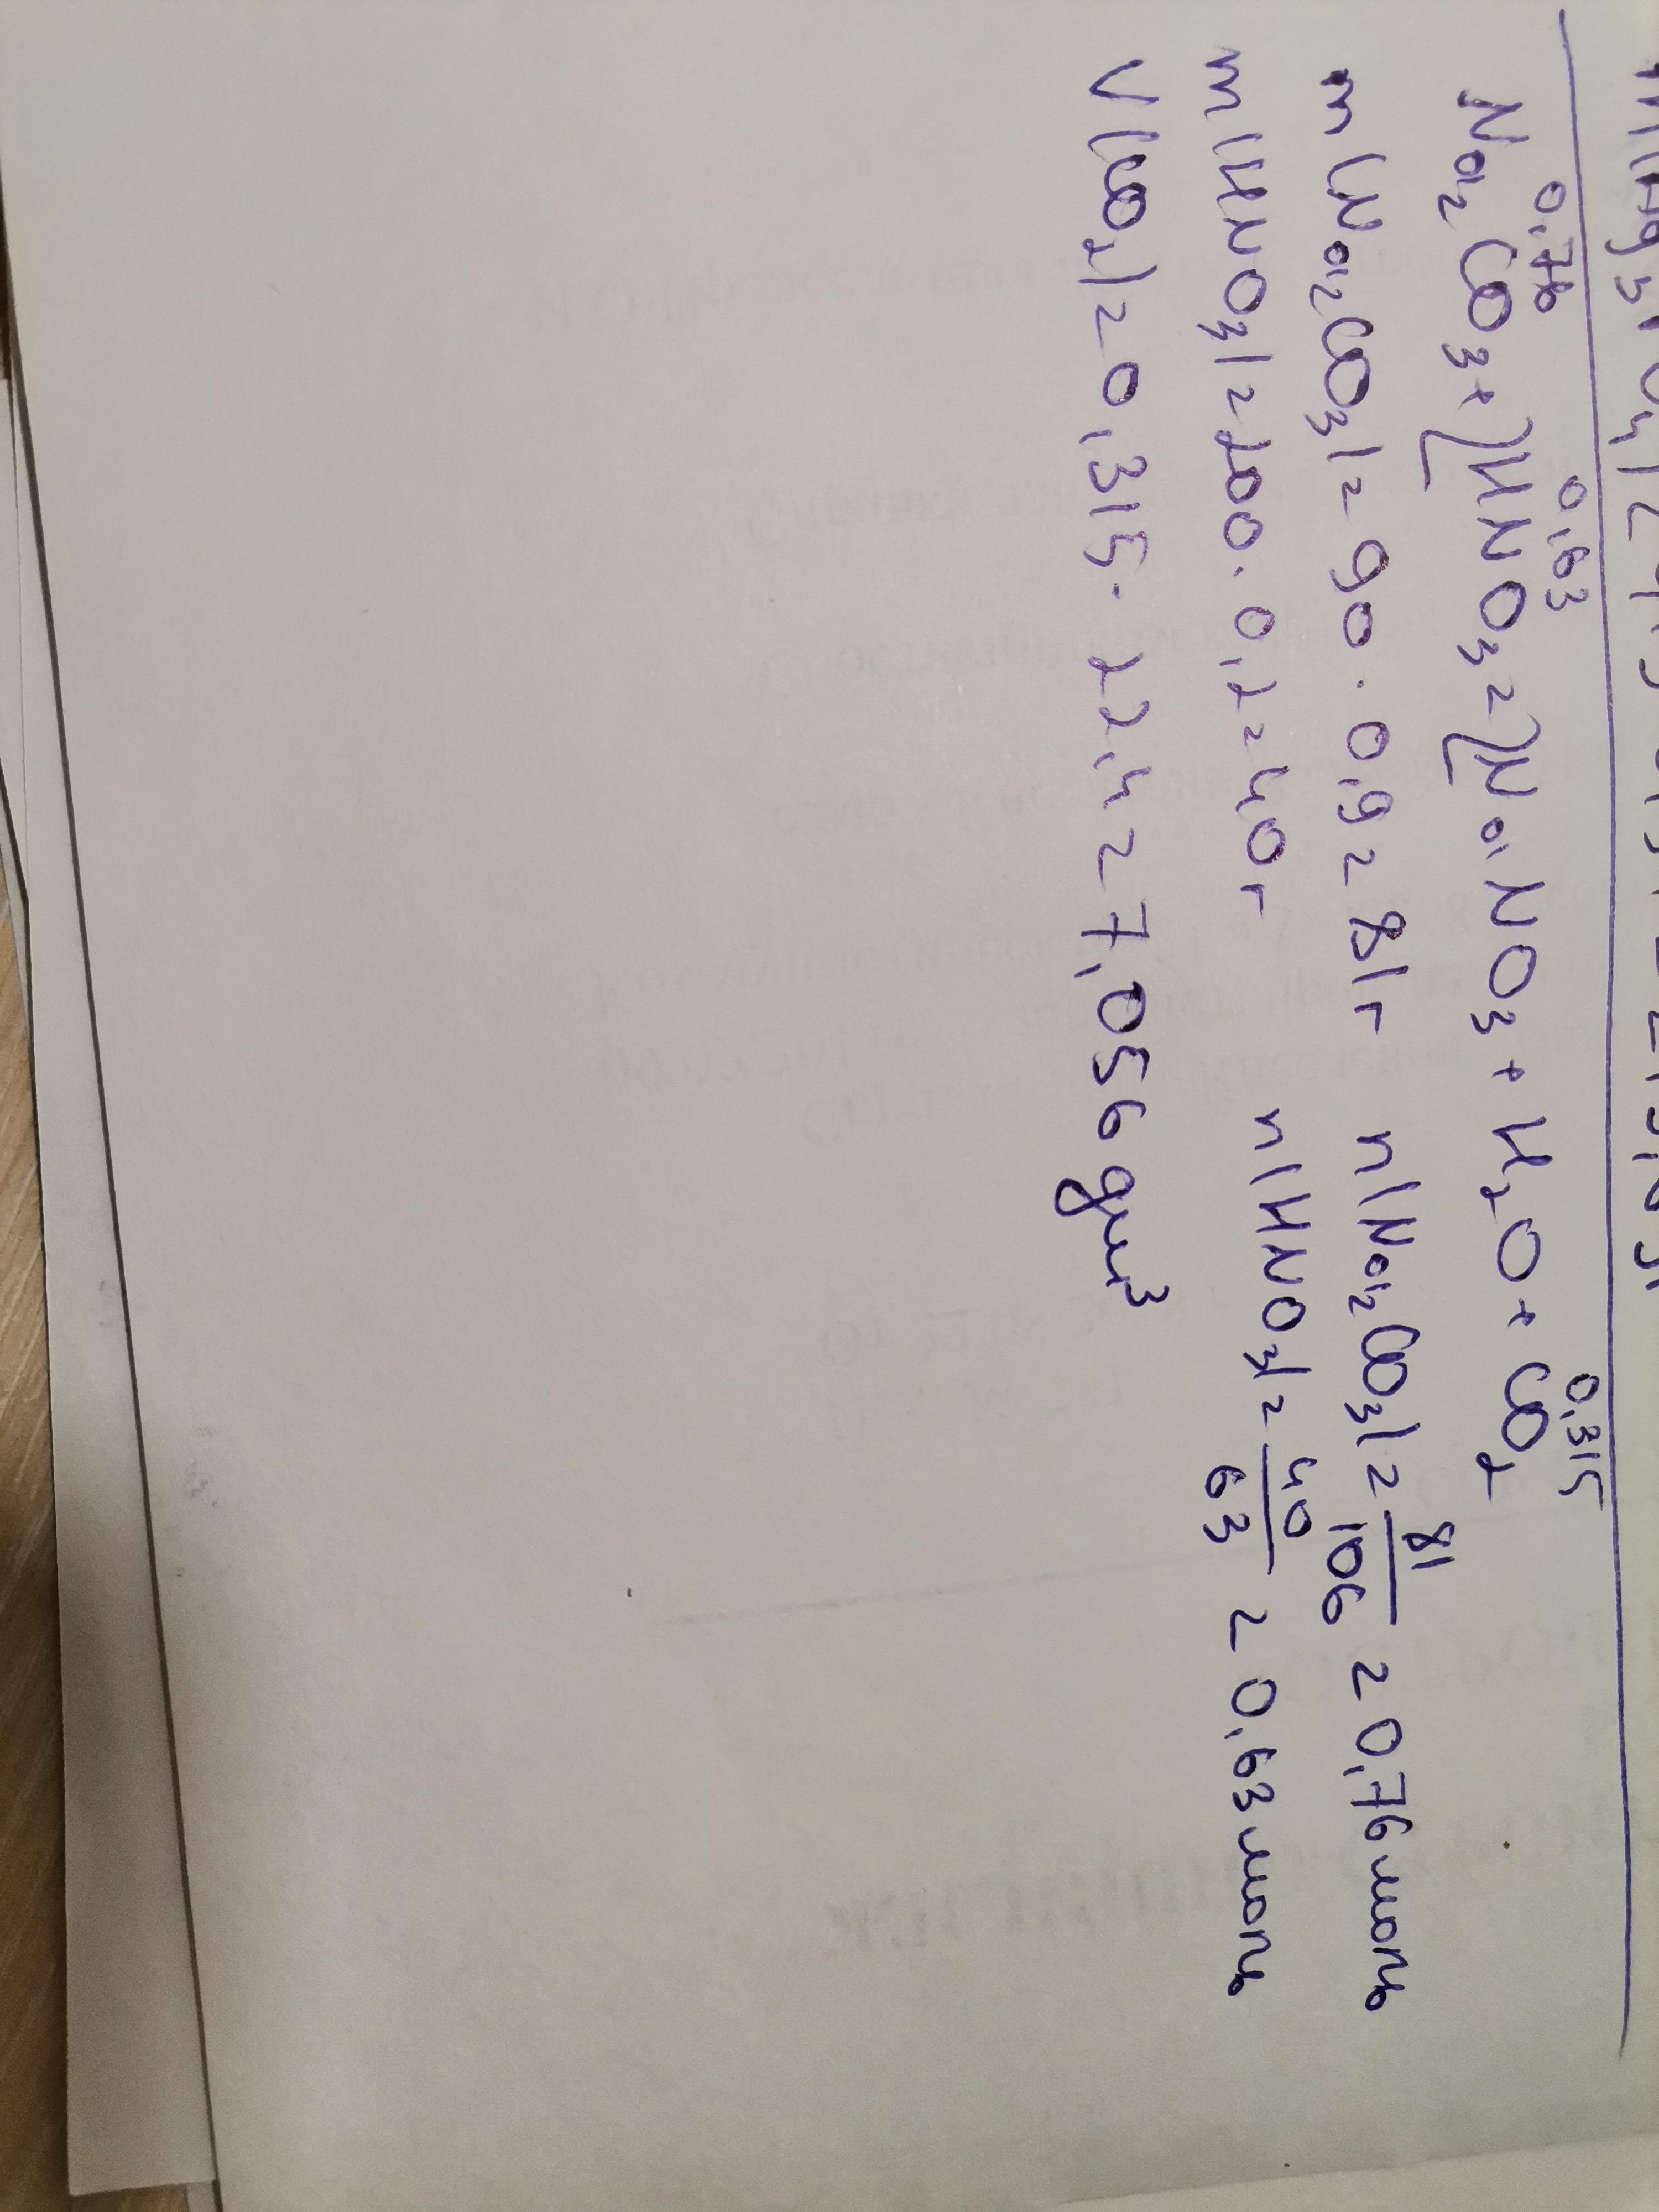 0,76 0,63 0,315
Na₂CO₃ + 2HNO₃ = 2NaNO₃ + H₂O + CO₂
m(Na₂CO₃) = 90 · 0,9 = 81г n(Na₂CO₃) = 81/106 = 0,76 моль
m(HNO₃) = 200 · 0,2 = 40г n(HNO₃) = 40/63 = 0,63 моль
V(CO₂) = 0,315 · 22,4 = 7,056 дм³